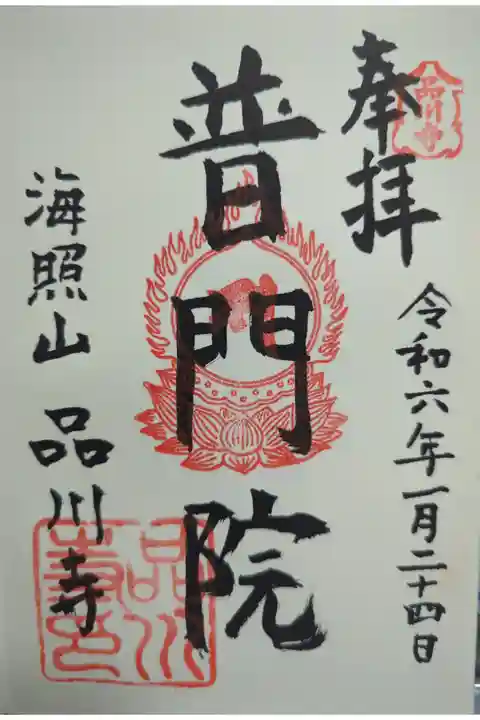 奉拝
令和六年一月二十四日
普門院
海照山 品川寺
品川寺